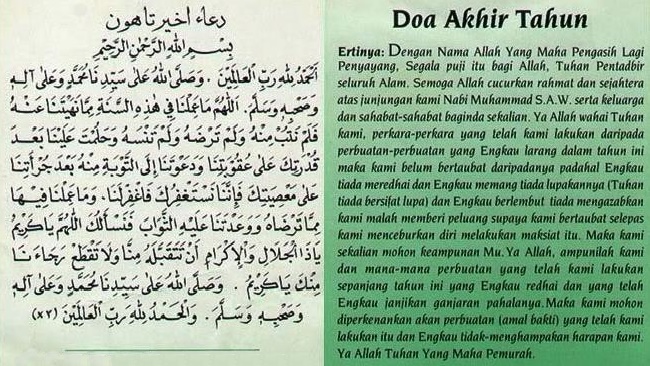 دعاء اخير تاهون
بِسْمِ اللهِ الرَّحْمٰنِ الرَّحِيْمِ
اَلْحَمْدُ لِلّٰهِ رَبِّ الْعَالَمِيْنَ . وَصَلَّى اللهُ عَلَى سَيِّدِنَا مُحَمَّدٍ وَعَلَى آلِهِ
وَصَحْبِهِ وَسَلَّمَ . اَللّٰهُمَّ مَا عَمِلْنَا فِي هٰذِهِ السَّنَةِ مِمَّا نَهَيْتَنَا عَنْهُ
فَلَمْ نَتُبْ مِنْهُ وَلَمْ تَرْضَهُ وَلَمْ تَنْسَهُ وَحَلُمْتَ عَلَيْنَا بَعْدَ
قُدْرَتِكَ عَلَى عُقُوْبَتِنَا وَدَعَوْتَنَا إِلَى التَّوْبَةِ مِنْهُ بَعْدَ جُرْأَتِنَا
عَلَى مَعْصِيَتِكَ فَإِنَّنَا نَسْتَغْفِرُكَ فَاغْفِرْلَنَا . وَمَا عَمِلْنَا فِيهَا
مِمَّا تَرْضَاهُ وَوَعَدْتَنَا عَلَيْهِ الثَّوَابَ فَنَسْأَلُكَ اللّٰهُمَّ يَا كَرِيْمُ
يَاذَا الْجَلَالِ وَالْإِكْرَامِ أَنْ تَتَقَبَّلَهُ مِنَّا وَلَا تَقْطَعْ رَجَاءَنَا
مِنْكَ يَا كَرِيْمُ . وَصَلَّى اللهُ عَلَى سَيِّدِنَا مُحَمَّدٍ وَعَلَى آلِهِ
وَصَحْبِهِ وَسَلَّمَ . وَالْحَمْدُ لِلّٰهِ رَبِّ الْعَالَمِيْنَ (×٣)
Doa Akhir Tahun
Ertinya: Dengan Nama Allah Yang Maha Pengasih Lagi
Penyayang, Segala puji itu bagi Allah, Tuhan Pentadbir
seluruh Alam. Semoga Allah cucurkan rahmat dan sejahtera
atas junjungan kami Nabi Muhammad S.A.W. serta keluarga
dan sahabat-sahabat baginda sekalian. Ya Allah wahai Tuhan
kami, perkara-perkara yang telah kami lakukan daripada
perbuatan-perbuatan yang Engkau larang dalam tahun ini
maka kami belum bertaubat daripadanya padahal Engkau
tiada meredhai dan Engkau memang tiada lupakannya (Tuhan
tiada bersifat lupa) dan Engkau berlembut tiada mengazabkan
kami malah memberi peluang supaya kami bertaubat selepas
kami menceburkan diri melakukan maksiat itu. Maka kami
sekalian mohon keampunan Mu. Ya Allah, ampunilah kami
dan mana-mana perbuatan yang telah kami lakukan
sepanjang tahun ini yang Engkau redhai dan yang telah
Engkau janjikan ganjaran pahalanya. Maka kami mohon
diperkenankan akan perbuatan (amal bakti) yang telah kami
lakukan itu dan Engkau tidak-menghampakan harapan kami.
Ya Allah Tuhan Yang Maha Pemurah.